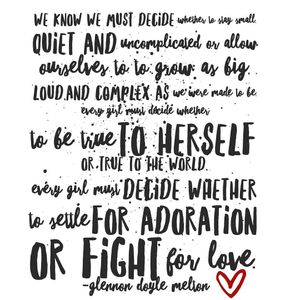 WE KNOW WE MUST DECIDE whether to stay small
QUIET AND uncomplicated or allow
ourselves to to grow as big
LOUD AND COMPLEX AS we were made to be
every girl must decide whether
to be true TO HERSELF
OR TRUE TO THE WORLD.
every girl must DECIDE WHETHER
to settle FOR ADORATION
OR FIGHT for love
-glennon doyle melton